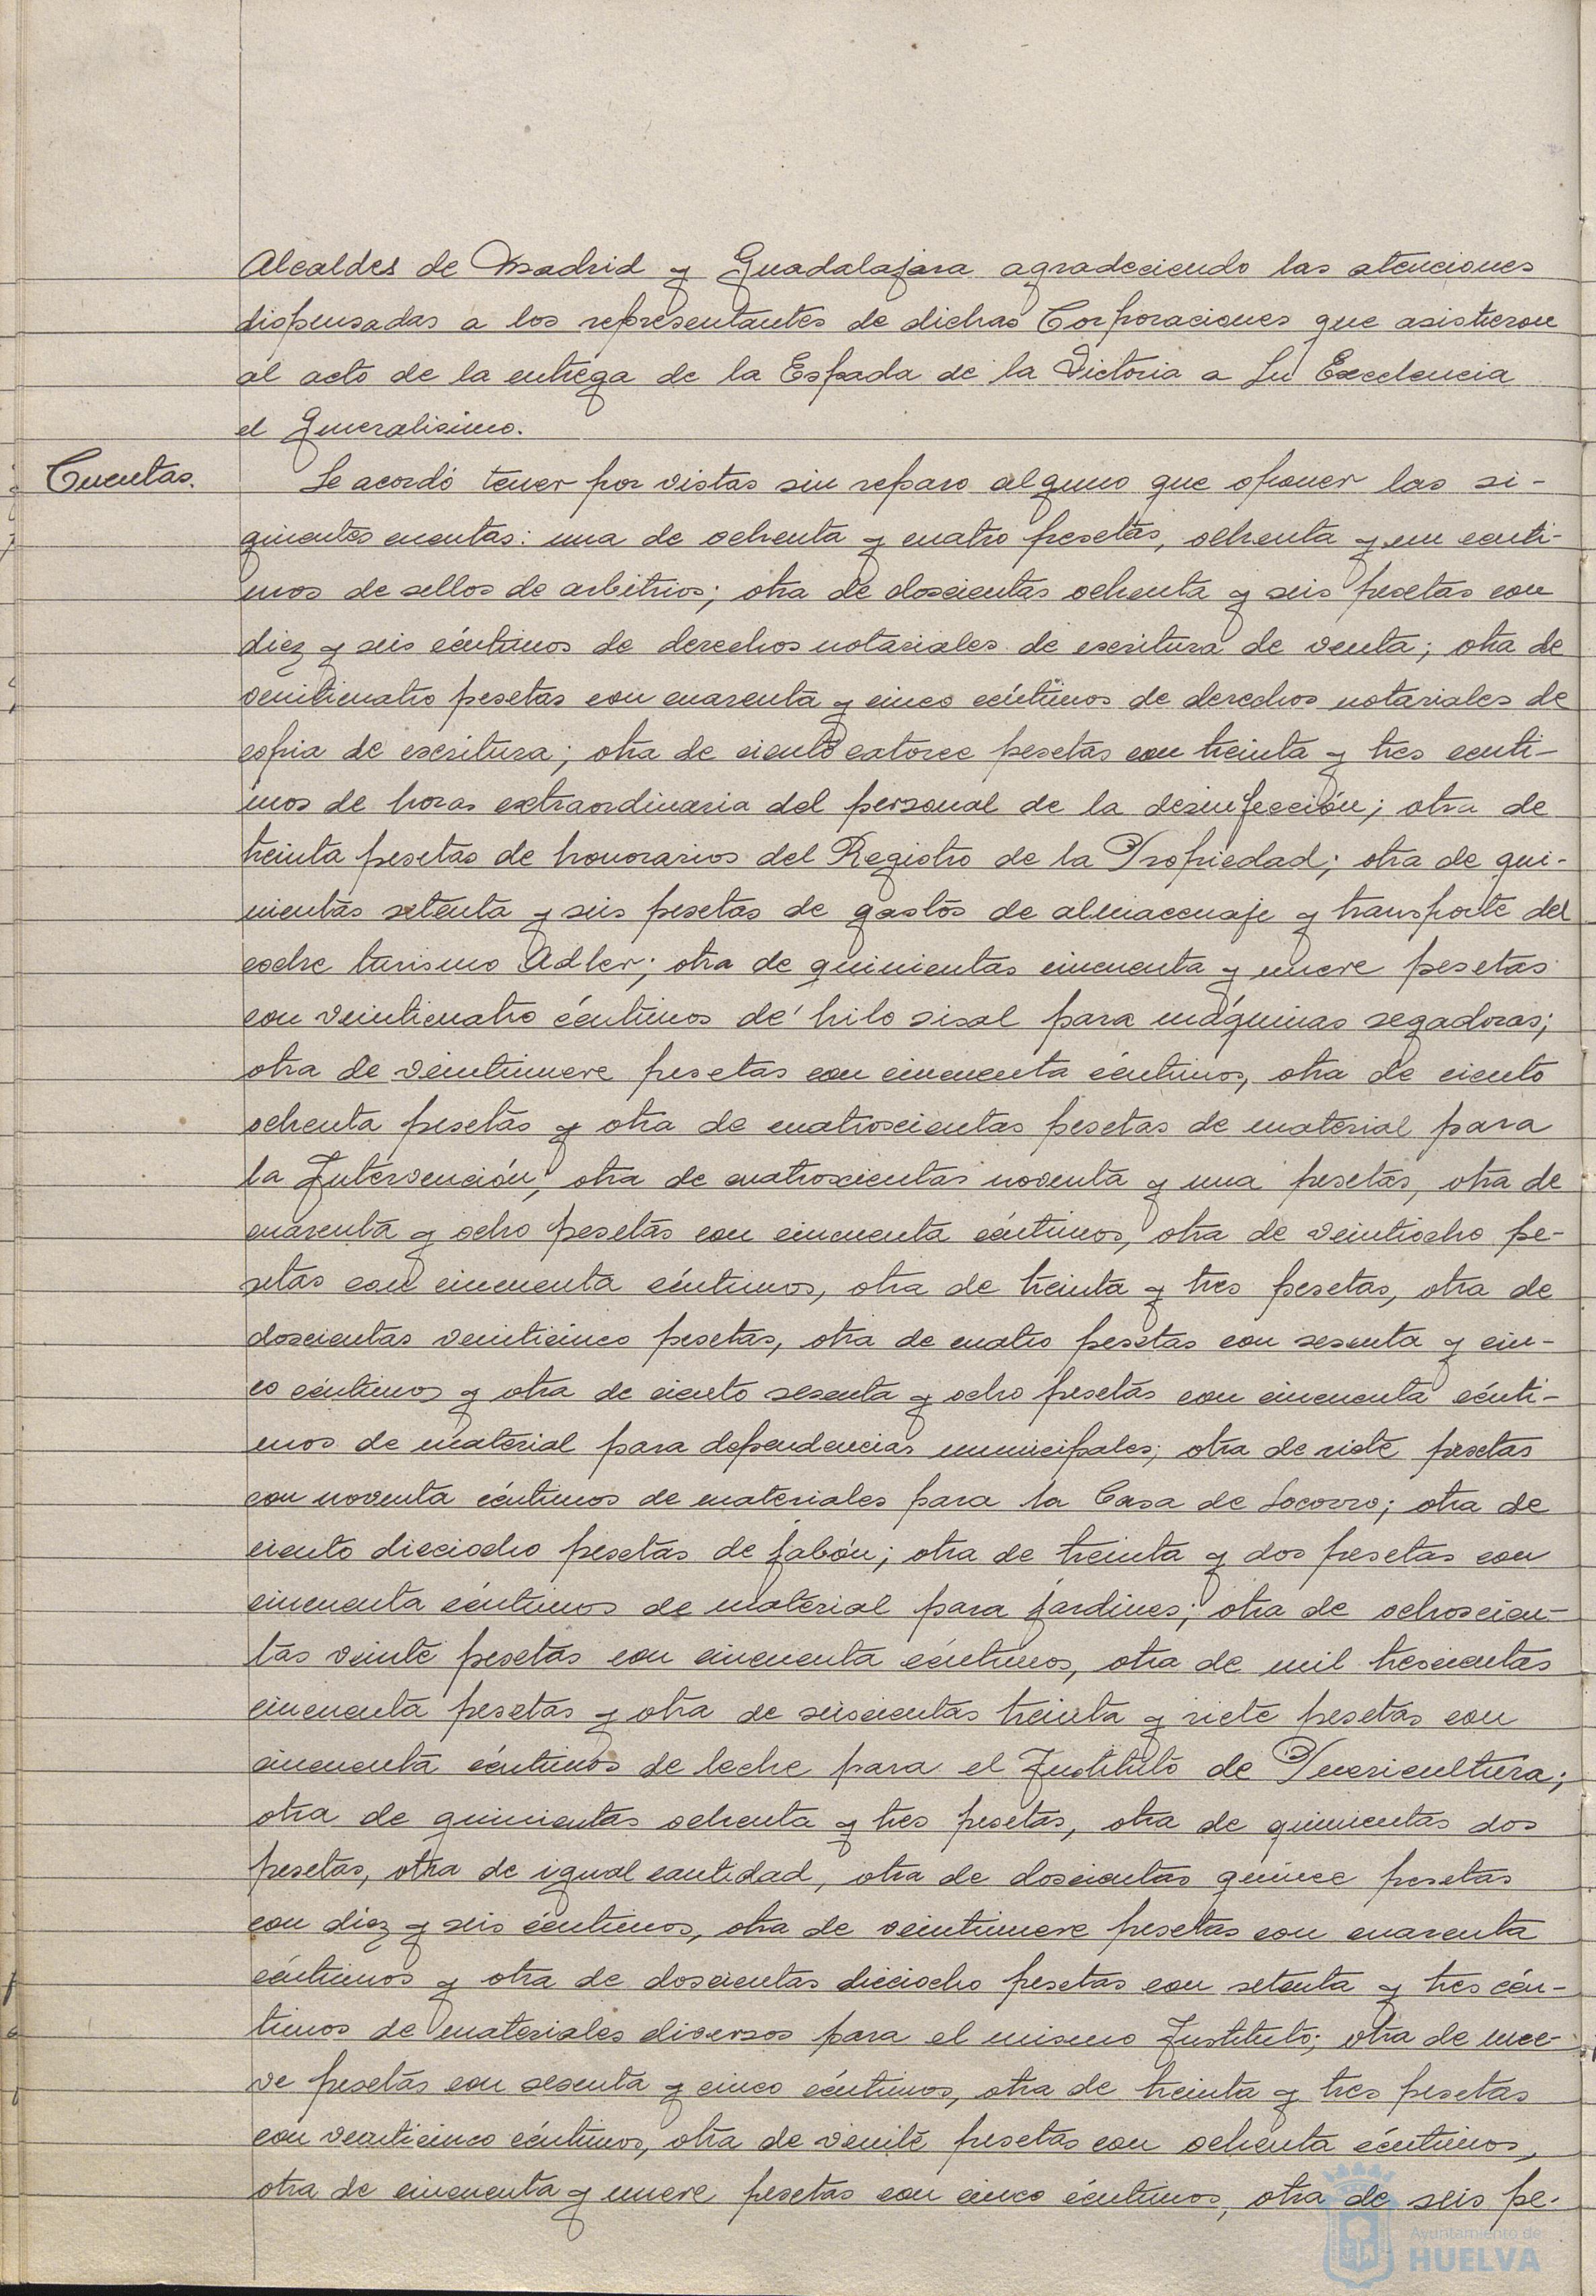 Alcaldes de Madrid y Guadalajara agradeciendo las atenciones
dispensadas a los representantes de dichas Corporaciones que asistieron
al acto de la entrega de la Espada de la Victoria a Su Excelencia
el Generalisimo.
Cuentas.
Se acordó tener por vistas sin reparo alguno que oponer las si-
guientes cuentas: una de ochenta y cuatro pesetas, ochenta y un centi-
mos de sellos de arbitrios; otra de doscientas ochenta y seis pesetas con
diez y seis céntimos de derechos notariales de escritura de venta; otra de
veinticuatro pesetas con cuarenta y cinco céntimos de derechos notariales de
copia de escritura; otra de ciento catorce pesetas con treinta y tres centi-
mos de horas extraordinaria del personal de la desinfección; otra de
treinta pesetas de honorarios del Registro de la Propiedad; otra de qui-
nientas setenta y seis pesetas de gastos de almacenaje y transporte del
coche turismo Adler; otra de quinientas cincuenta y nueve pesetas
con veinticuatro céntimos de hilo sisal para máquinas segadoras;
otra de veintinueve pesetas con cincuenta céntimos, otra de ciento
ochenta pesetas y otra de cuatroscientas pesetas de material para
la Intervención; otra de cuatroscientas noventa y una pesetas, otra de
cuarenta y ocho pesetas con cincuenta céntimos, otra de veintiocho pe-
setas con cincuenta céntimos, otra de treinta y tres pesetas, otra de
doscientas veinticinco pesetas, otra de cuatro pesetas con sesenta y cin-
co céntimos y otra de ciento sesenta y ocho pesetas con cincuenta cénti-
mos de material para dependencias municipales; otra de siete pesetas
con noventa céntimos de materiales para la Casa de Socorro; otra de
ciento dieciocho pesetas de jabón; otra de treinta y dos pesetas con
cincuenta céntimos de material para jardines; otra de ochoscien-
tas veinte pesetas con cincuenta céntimos, otra de mil trescientas
cincuenta pesetas y otra de seiscientas treinta y siete pesetas con
cincuenta céntimos de leche para el Instituto de Puericultura;
otra de quinientas ochenta y tres pesetas, otra de quinientas dos
pesetas, otra de igual cantidad, otra de doscientas quince pesetas
con diez y seis céntimos, otra de veintinueve pesetas con cuarenta
céntimos y otra de doscientas dieciocho pesetas con setenta y tres cén-
timos de materiales diversos para el mismo Instituto; otra de nue-
ve pesetas con sesenta y cinco céntimos, otra de treinta y tres pesetas
con veinticinco céntimos, otra de veinte pesetas con ochenta céntimos,
otra de cincuenta y nueve pesetas con cinco céntimos, otra de seis pe-
Ayuntamiento de
HUELVA